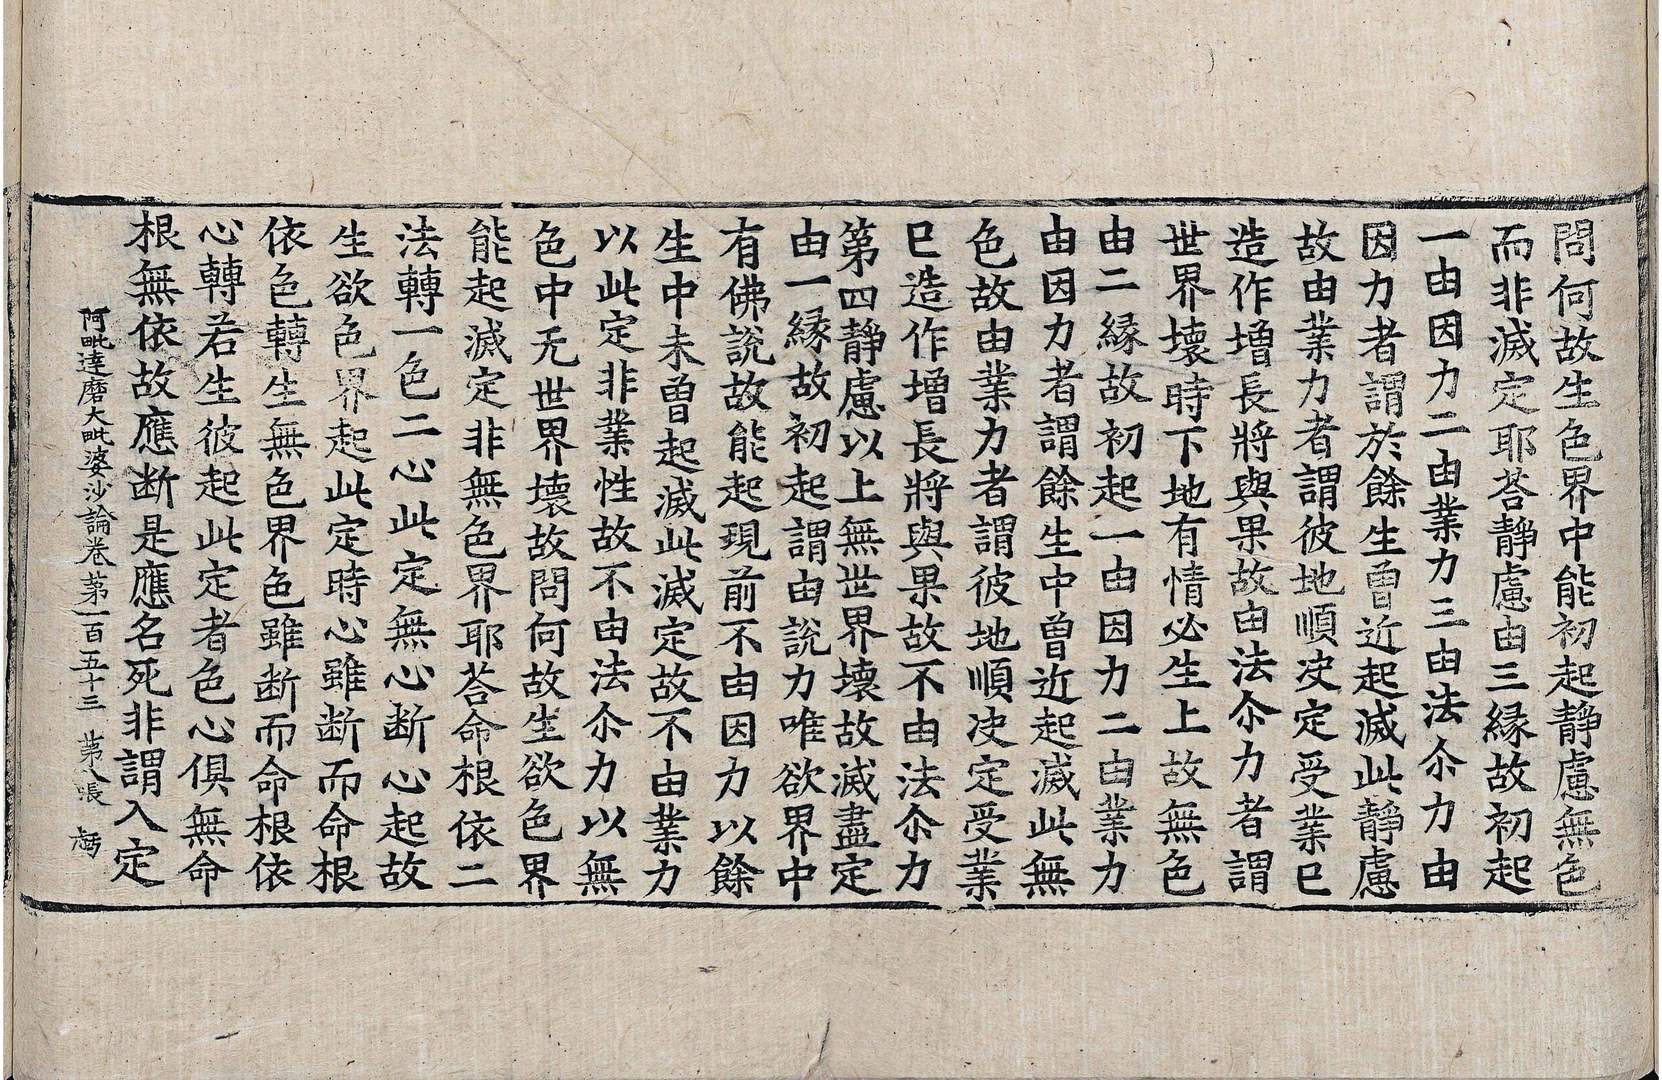 問何故生色界中能初起靜慮無色
而非滅定耶荅靜慮由三縁故初起
一由因力二由業力三由法尒力由
因力者謂於餘生曾近起滅此靜慮
故由業力者謂彼地順決定受業已
造作增長將與果故由法尒力者謂
世界壞時下地有情必生上故無色
由二縁故初起一由因力二由業力
由因力者謂餘生中曾近起滅此無
色故由業力者謂彼地順決定受業
已造作增長將與果故不由法尒力
第四靜慮以上無世界壞故滅盡定
由一縁故初起謂由說力唯欲界中
有佛說故能起現前不由因力以餘
生中未曾起滅此滅定故不由業力
以此定非業性故不由法尒力以無
色中无世界壞故問何故生欲色界
能起滅定非無色界耶荅命根依二
法轉一色二心此定無心断心起故
生欲色界起此定時心雖断而命根
依色轉生無色界色雖断而命根依
心轉若生彼起此定者色心俱無命
根無依故應断是應名死非謂入定
阿毗達磨大毗婆沙論卷第一百五十三 第八張